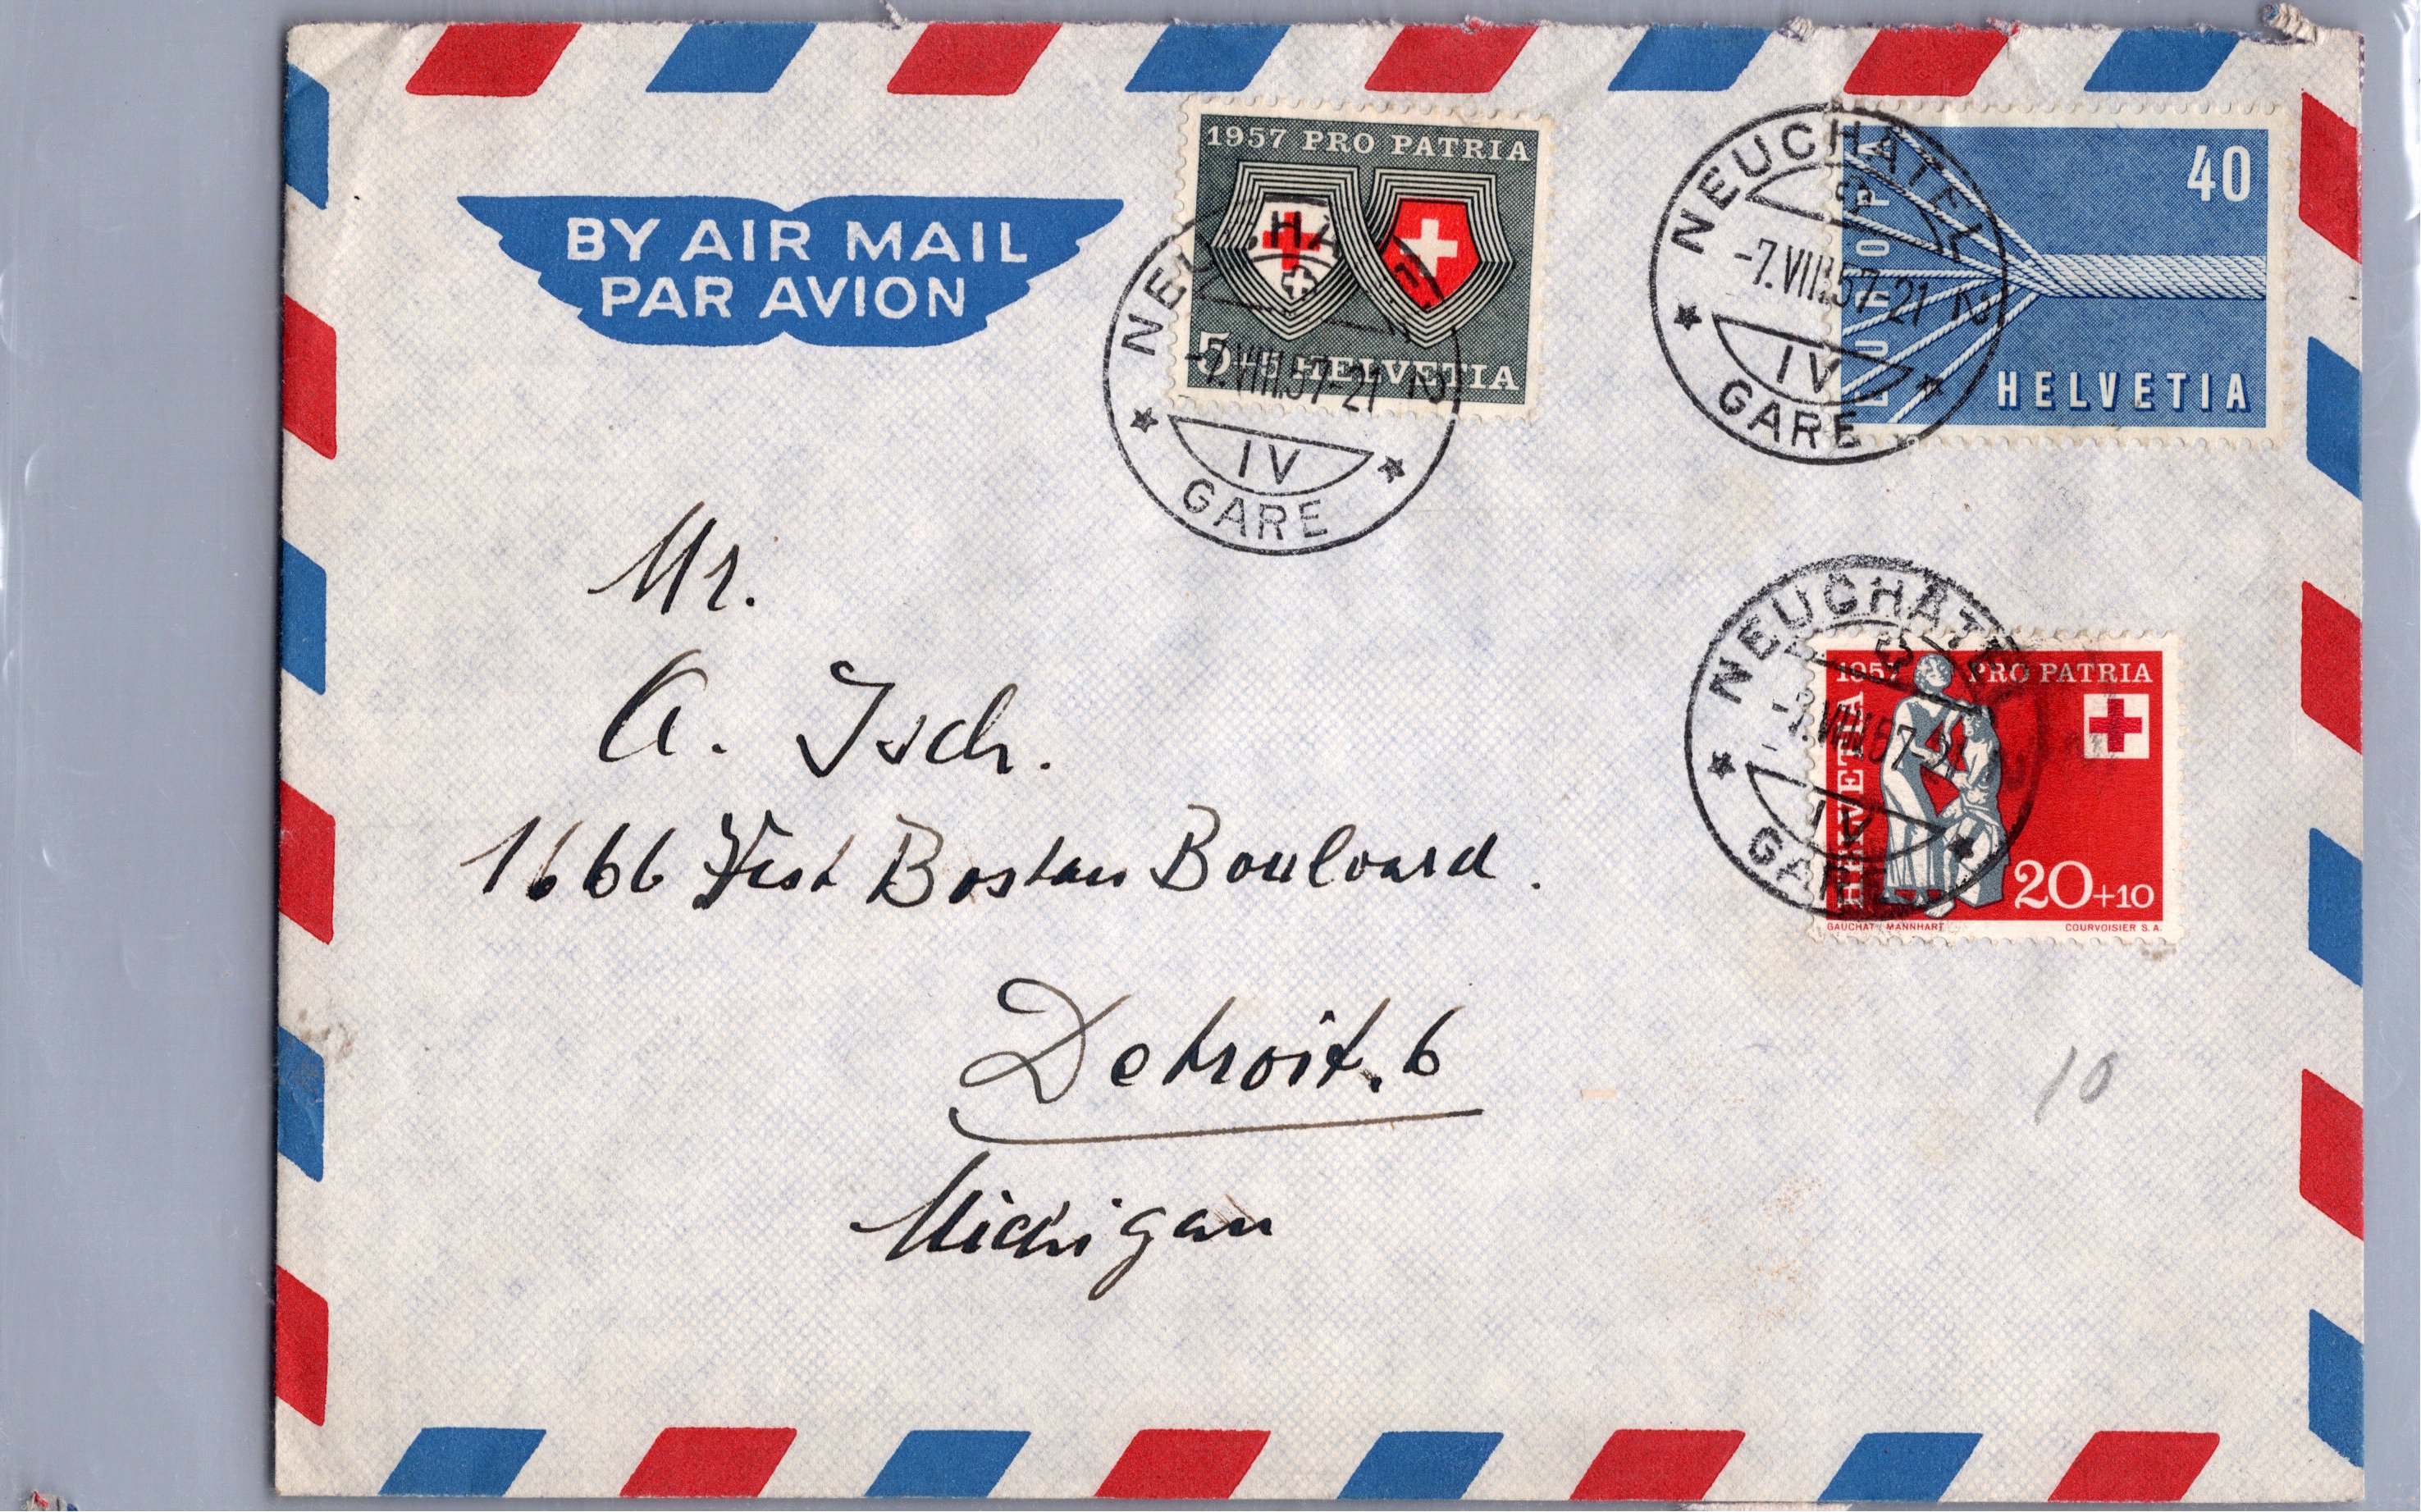 BY AIR MAIL
PAR AVION
1957 PRO PATRIA
5+5 HELVETIA
NEUCHATEL 2
-7.VIII.57-21
IV
GARE
EUROPA
40
HELVETIA
NEUCHATEL 2
-7.VIII.57-21
IV
GARE
1957 PRO PATRIA
HELVETIA
20+10
GAUCHAT/MANNHART COURVOISIER S.A.
NEUCHATEL
-7.VIII.57-21
IV
GARE
Mr.
A. Isch.
1666 West Boston Boulvard.
Detroit. 6
Michigan
10